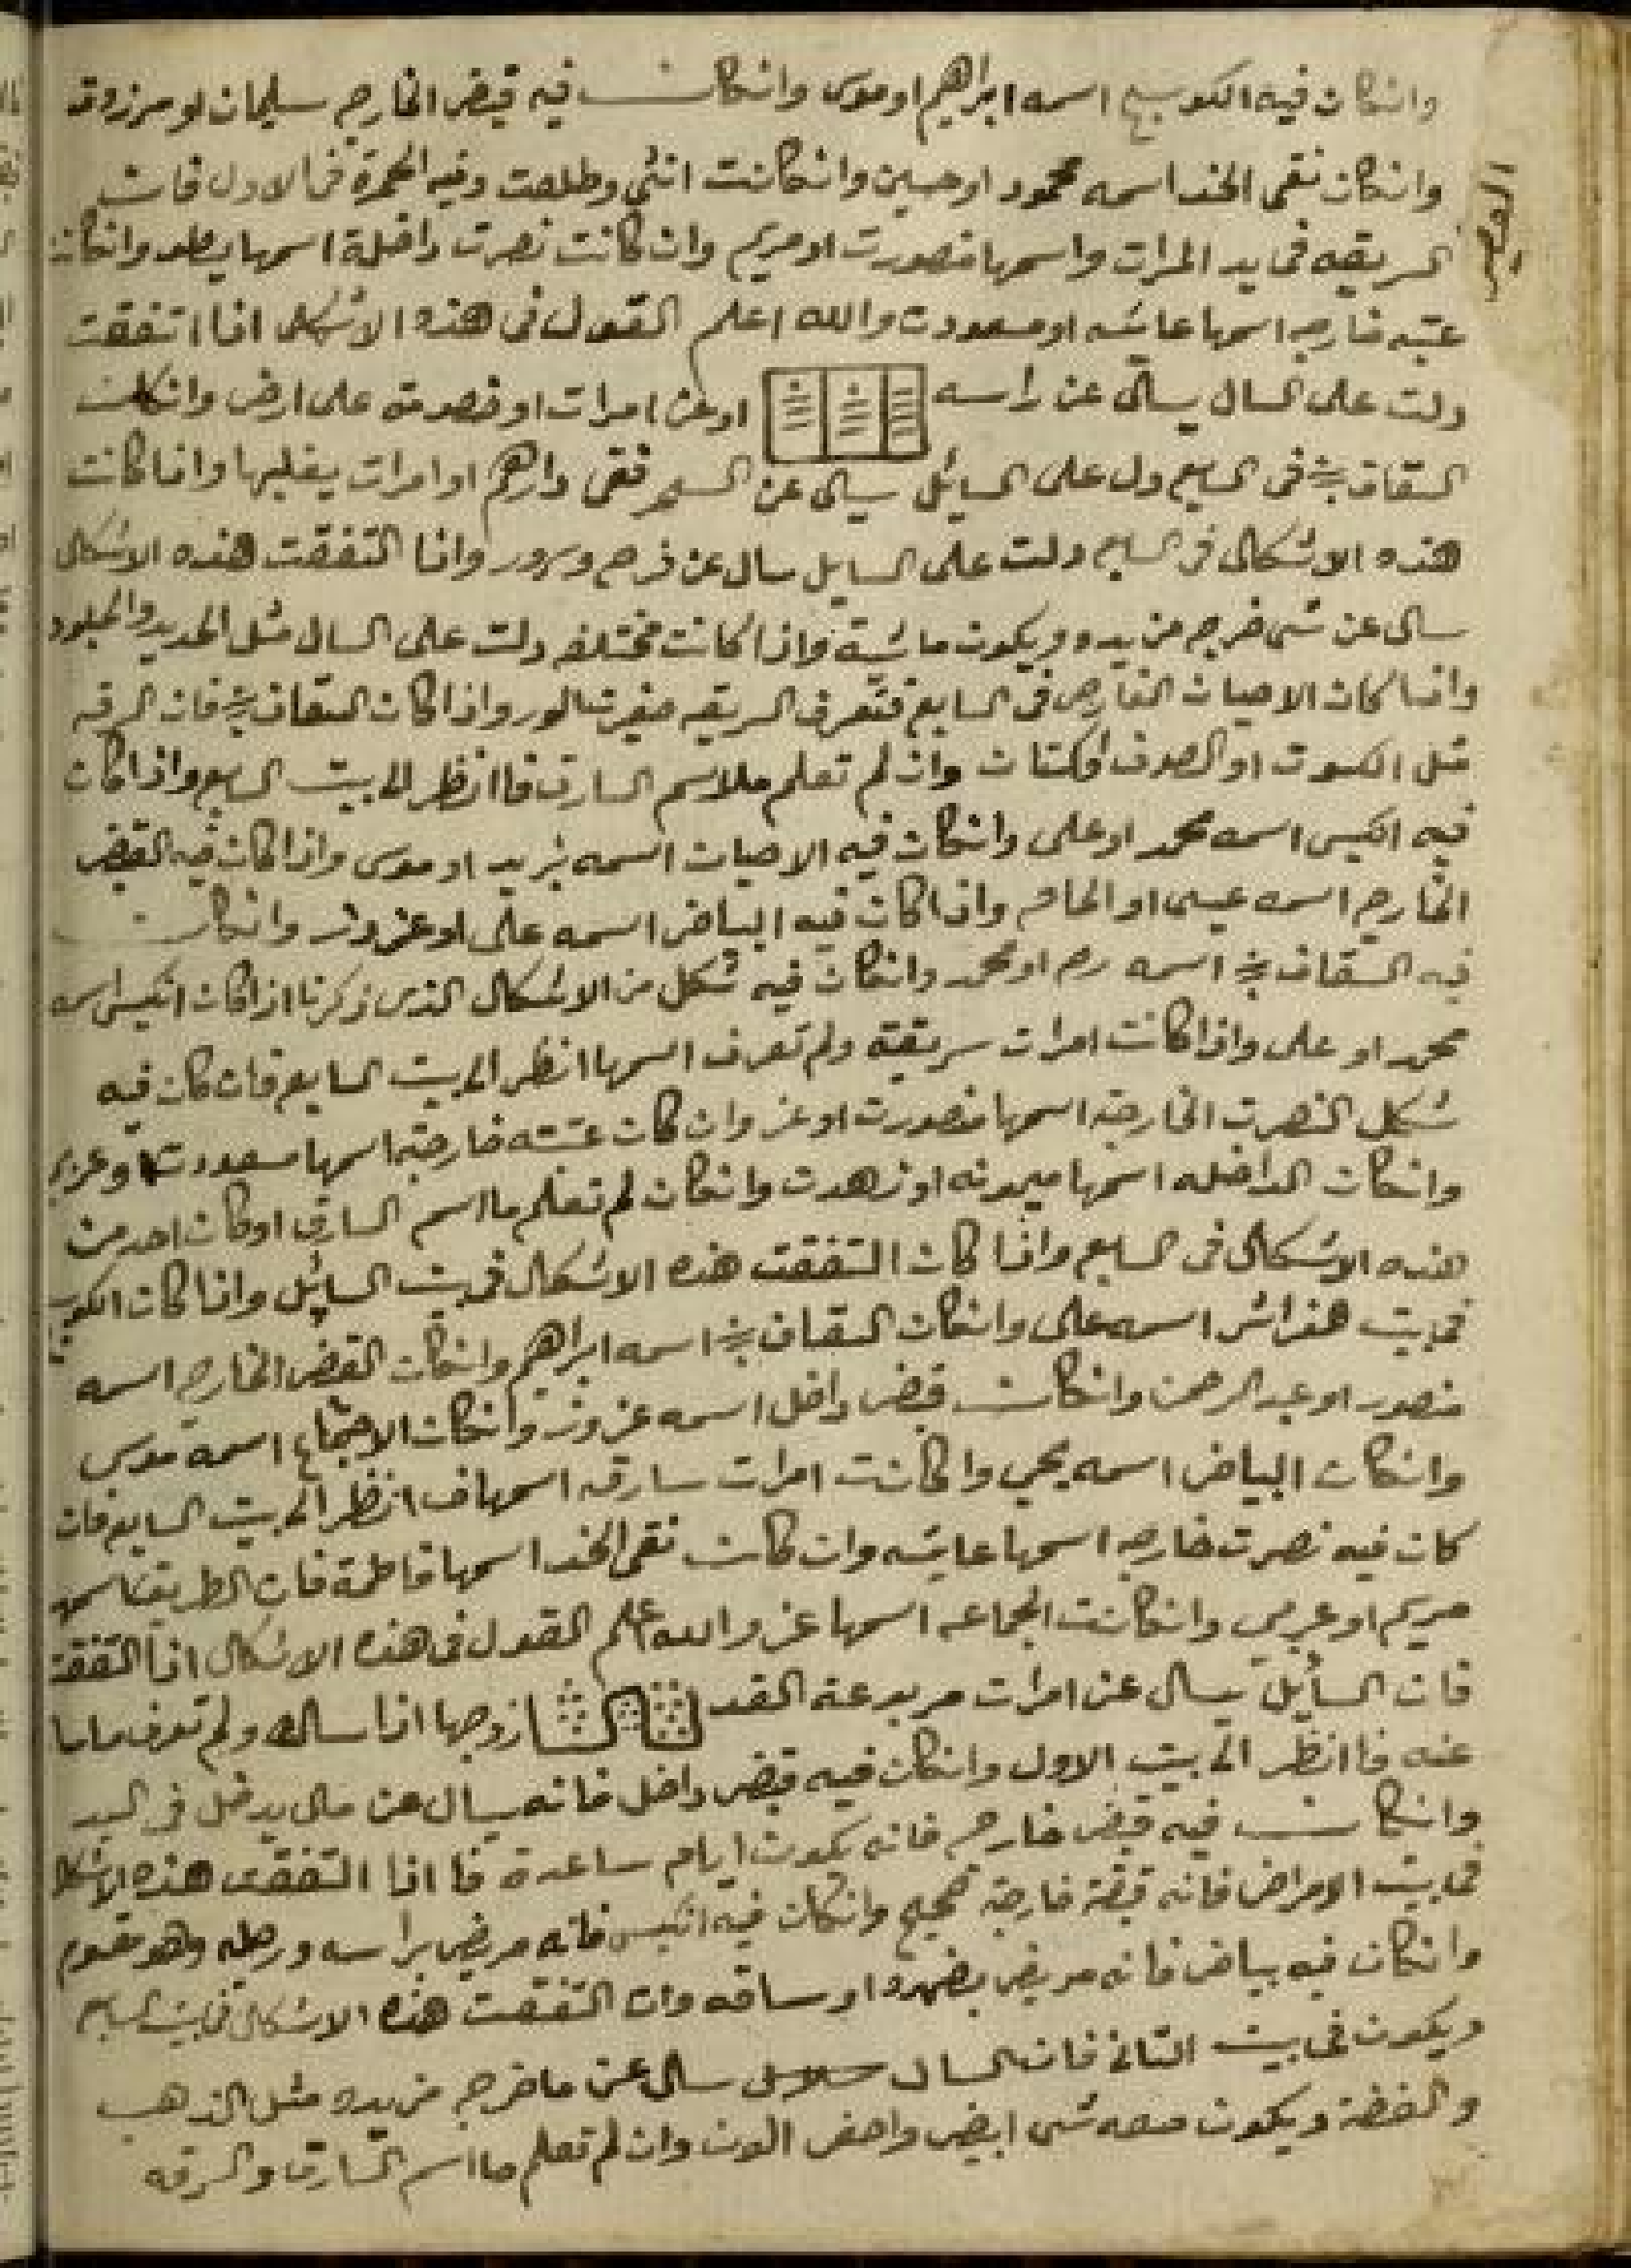 وانكان فيه الكوسج اسمه ابراهيم او موسى وانكان فيه قبض الخارج سليمان او مرزوق
وانكان نقى الخد اسمه محمود او حسين وانكانت انثى وطلعت وفيه الحمرة فى الاول فان
السريقه فى يد المرات واسمها منصورت او مريم وان كانت نصرت داخلة اسمها وانكان
عتبه خارجه اسمها عائشه او مسعودت والله اعلم القول فى هذه الاشكال اذا اتفقت
دلت على السال يسالى عن راسه او عن امرات او خصومة على ارض وانكان
الثقاف فى السابع دل على السايل سالى عن السفر فقى دارهم او امرات يغلبها واذا كانت
هذه الاشكال فى السابع دلت على السايل سال عن فرح وسرور واذا اتفقت هذه الاشكال
سالى عن شى خرج من يده ويكون ماشية واذا كانت مختلفه دلت على السال مثل الحديد والجلود
واذا كان الاحيان الخارج فى السابع فتعرف السريقه واذا كان الثقاف فان السرقه
مثل الكسوت او الصوف او كتان وان لم تعلم ملاسم السارق فاانظر الى بيت السابع واذا كان
فيه انكيس اسمه محمد او على وانكان فيه الاحيان اسمه يزيد او موسى واذا كان فيه القبض
الخارج اسمه عيسى او الحاج واذا كان فيه البياض اسمه على او عزوز وانكان
فيه الثقاف اسمه او محمد وانكان فيه شكل من الاشكال الذى ذكرنا اذا كان انكيس اسمه
محمد او على واذا كانت امرات سريقته ولم تعرف اسمها انظر الى بيت السابع فان كان فيه
شكل النصرت الخارجة اسمها منصورت او عز وان كان عتبه خارجة اسمها مسعودت او
وانكان الداخله اسمها ميمونه او زهدت وانكان لم تعلم ما اسم السارق او كان احد من
هذه الاشكال فى السابع واذا كان اتفقت هذه الاشكال فى بيت السايل واذا كان الكوسج
فى بيت اسمه على وانكان الثقاف اسمه ابراهيم وانكان القبض الخارج اسمه
منصور او عبد الرحمن وانكان قبض داخل اسمه عزوز وانكان الاجتماع اسمه موسى
وانكان البياض اسمه يحي واكانت امرات سارقه اسمها ف انظر الى بيت السابع فان
كان فيه نصرت خارجه اسمها عايشه وان كان نقى الخد اسمها فاطمة فان الطريق اسمها
مريم او وانكانت الجماعه اسمها عز والله اعلم القول فى هذه الاشكال اذا اتفقة
فان السايل يسال عن امرات زوجها اذا سالك ولم تعرف ماسا
عنه فاانظر الى بيت الاول وانكان فيه قبض داخل فانه يسال عن مال يدخل فى اليد
وانكان فيه قبض خارج فانه يكون ايام ساعدة فا اذا اتفقت هذه الاشكال
فى بيت الامراض فانه قبضة خارجة صحيح وانكان فيه انكيس فانه مريض براسه ورجله وهو
وانكان فيه بياض فانه مريض بضهره او ساقه وان اتفقت هذه الاشكال فى بيت السابع
ويكون فى بيت الثانى فان السال سالى عن ما خرج من يده مثل الذهب
والفضة ويكون معه شى ابيض واصفر الون وان لم تعلم ما اسم السارق والسرقه